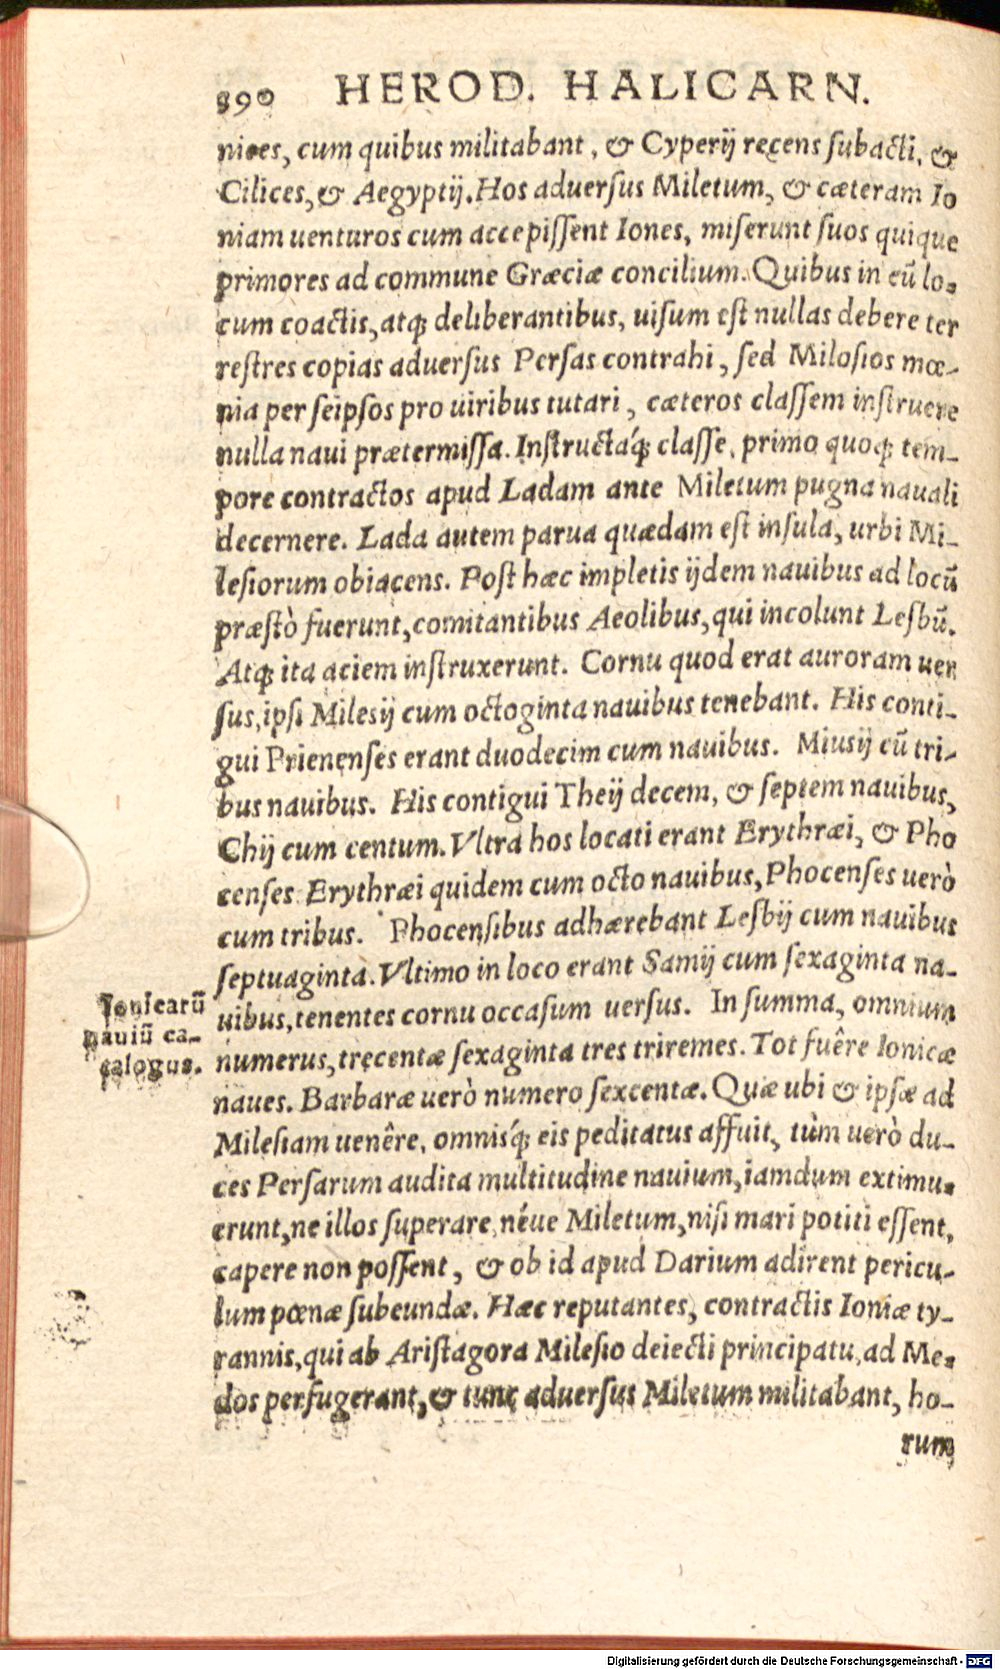 390 HEROD. HALICARN.
nices, cum quibus militabant, & Cyperij recens subacti, &
Cilices, & Aegyptij. Hos aduersus Miletum, & cæteram Io
niam uenturos cum accepissent Iones, miserunt suos quique
primores ad commune Græciæ concilium. Quibus in eũ lo-
cum coactis, atq; deliberantibus, uisum est nullas debere ter
restres copias aduersus Persas contrahi, sed Milosios mœ-
nia per seipsos pro uiribus tutari, cæteros classem instruere
nulla naui prætermissa. Instructáq; classe, primo quoq; tem-
pore contractos apud Ladam ante Miletum pugna nauali
decernere. Lada autem parua quædam est insula, urbi Mi-
lesiorum obiacens. Post hæc impletis ijdem nauibus ad locũ
præstò fuerunt, comitantibus Aeolibus, qui incolunt Lesbũ.
Atq; ita aciem instruxerunt. Cornu quod erat auroram uer
sus, ipsi Milesij cum octoginta nauibus tenebant. His conti-
gui Prienenses erant duodecim cum nauibus. Miusij cũ tri-
bus nauibus. His contigui Theij decem, & septem nauibus,
Chij cum centum. Vltra hos locati erant Erythræi, & Pho
censes Erythræi quidem cum octo nauibus, Phocenses uerò
cum tribus. Phocensibus adhærebant Lesbij cum nauibus
septuaginta. Vltimo in loco erant Samij cum sexaginta na-
uibus, tenentes cornu occasum uersus. In summa, omnium
numerus, trecentæ sexaginta tres triremes. Tot fuêre Ionicæ
naues. Barbaræ uerò numero sexcentæ. Quæ ubi & ipsæ ad
Milesiam uenêre, omnisq́; eis peditatus affuit, tùm uerò du-
ces Persarum audita multitudine nauium, iamdum extimu-
erunt, ne illos superare, néue Miletum, nisi mari potiti essent,
capere non possent, & ob id apud Darium adirent pericu-
lum pœnæ subeundæ. Hæc reputantes, contractis Ioniæ ty-
rannis, qui ab Aristagora Milesio deiecti principatu, ad Me-
dos perfugerant, & tunc aduersus Miletum militabant, ho-
rum
Ionicarũ
nauiũ ca-
talogus.
Digitalisierung gefördert durch die Deutsche Forschungsgemeinschaft - DFG